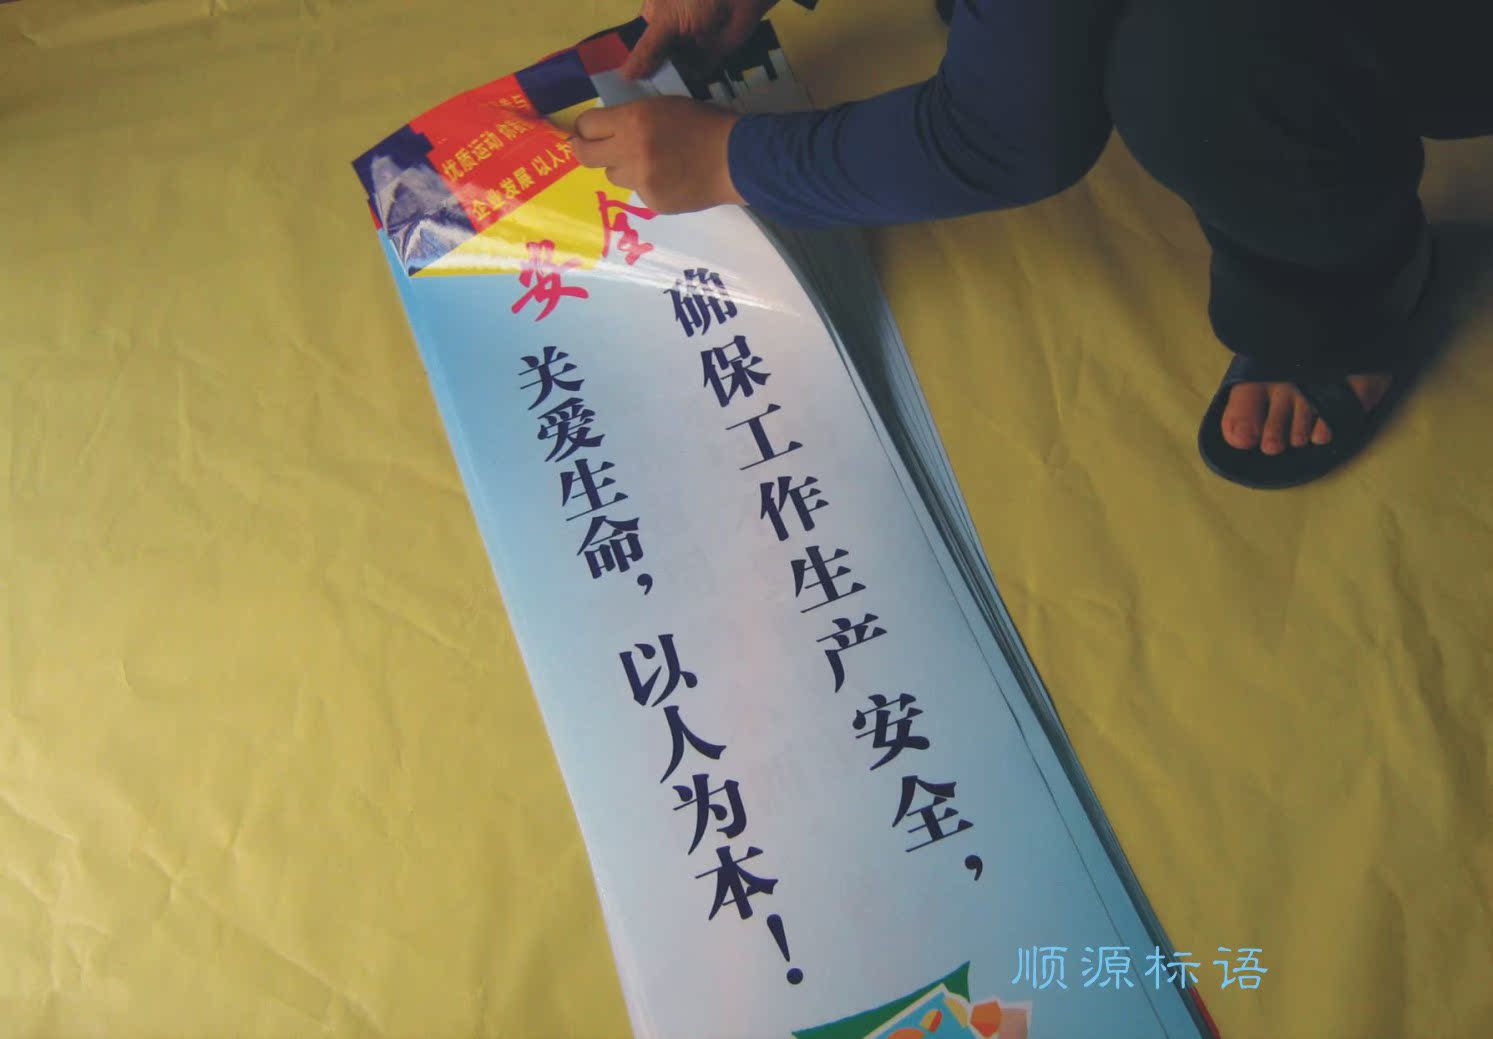 优质运动 你
企业发展 以人为
安全
确保工作生产安全，
关爱生命，以人为本！
顺源标语